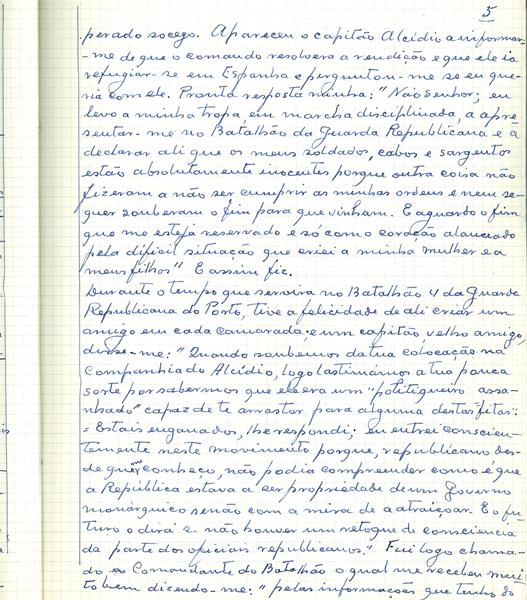 5
perado socego. Apareceu o capitão Alcídio a informar-
-me de que o comando resolvera a rendição e que ele ia
refugiar-se em Espanha e perguntou-me se eu que-
ria com ele. Pronta resposta minha: "Não senhor; eu
levo a minha tropa, em marcha disciplinada, a apre
sentar-me no Batalhão da Guarda Republicana e a
declarar ali que os meus soldados, cabos e sargentos
estão absolutamente inocentes porque outra coisa não
fizeram a não ser cumprir as minhas ordens e nem se-
quer souberam o fim para que vinham. E aguardo o fim
que me esteja reservado e só com o coração alanceado
pela dificil situação que criei a minha mulher e a
meus filhos" E assim fiz.
Durante o tempo que servira no Batalhão 4 da Guarda
Republicana do Porto, tive a felicidade de ali criar um
amigo em cada camarada; e um capitão, velho amigo,
disse-me: "Quando soubemos da tua colocação na
Companhia do Alcídio, logo lastimámos a tua pouca
sorte por sabermos que ele era um "politiqueiro assa-
nhado" capaz de te arrastar para alguma destas fitas:
= Estais enganados, lhe respondi; eu entrei conscien-
temente neste movimento porque, republicano des-
de que me conheço, não podia compreender como é que
a República estava a ser propriedade de um Governo
monárquico senão com a mira de a atraiçoar. E o fu
turo o dirá se não houver um retoque de consciencia
da parte dos oficiais republicanos." Fui logo chama-
do ao Comandante do Batalhão o qual me recebeu mui
to bem dizendo-me: "pelas informações que tenho do